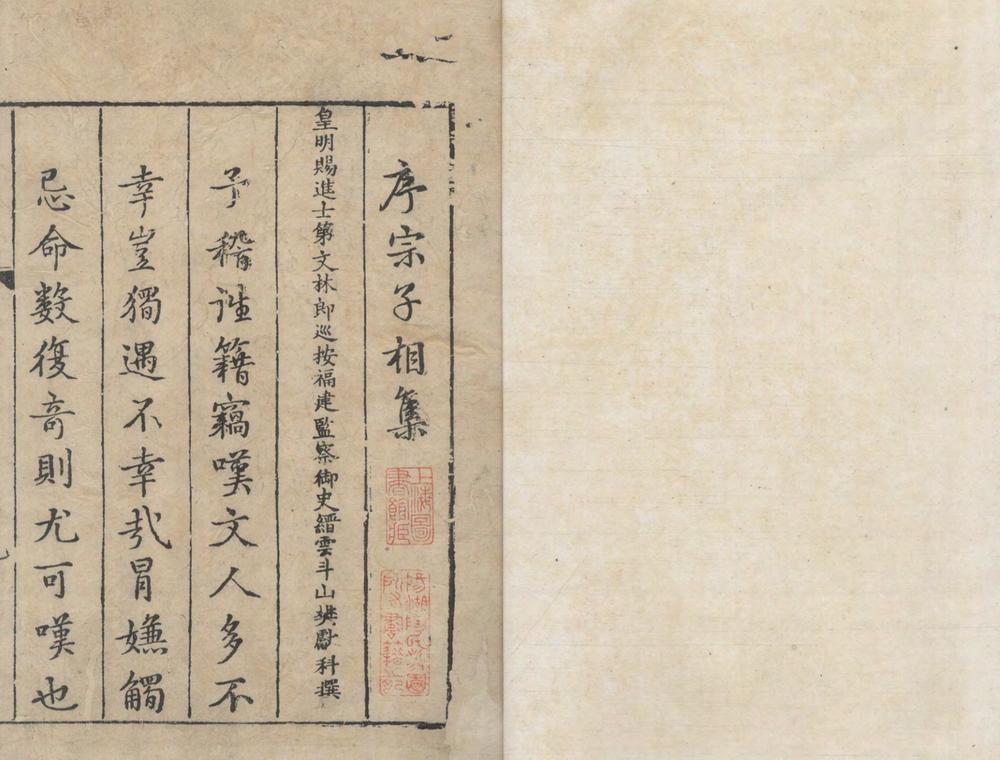 序宗子相集
皇明賜進士第文林郎巡按福建監察御史縉雲斗山樊獻科撰
予稽往籍竊嘆文人多不
幸豈獨遇不幸哉冐嫌觸
忌命数復奇則尤可嘆也
上海圖
書館藏